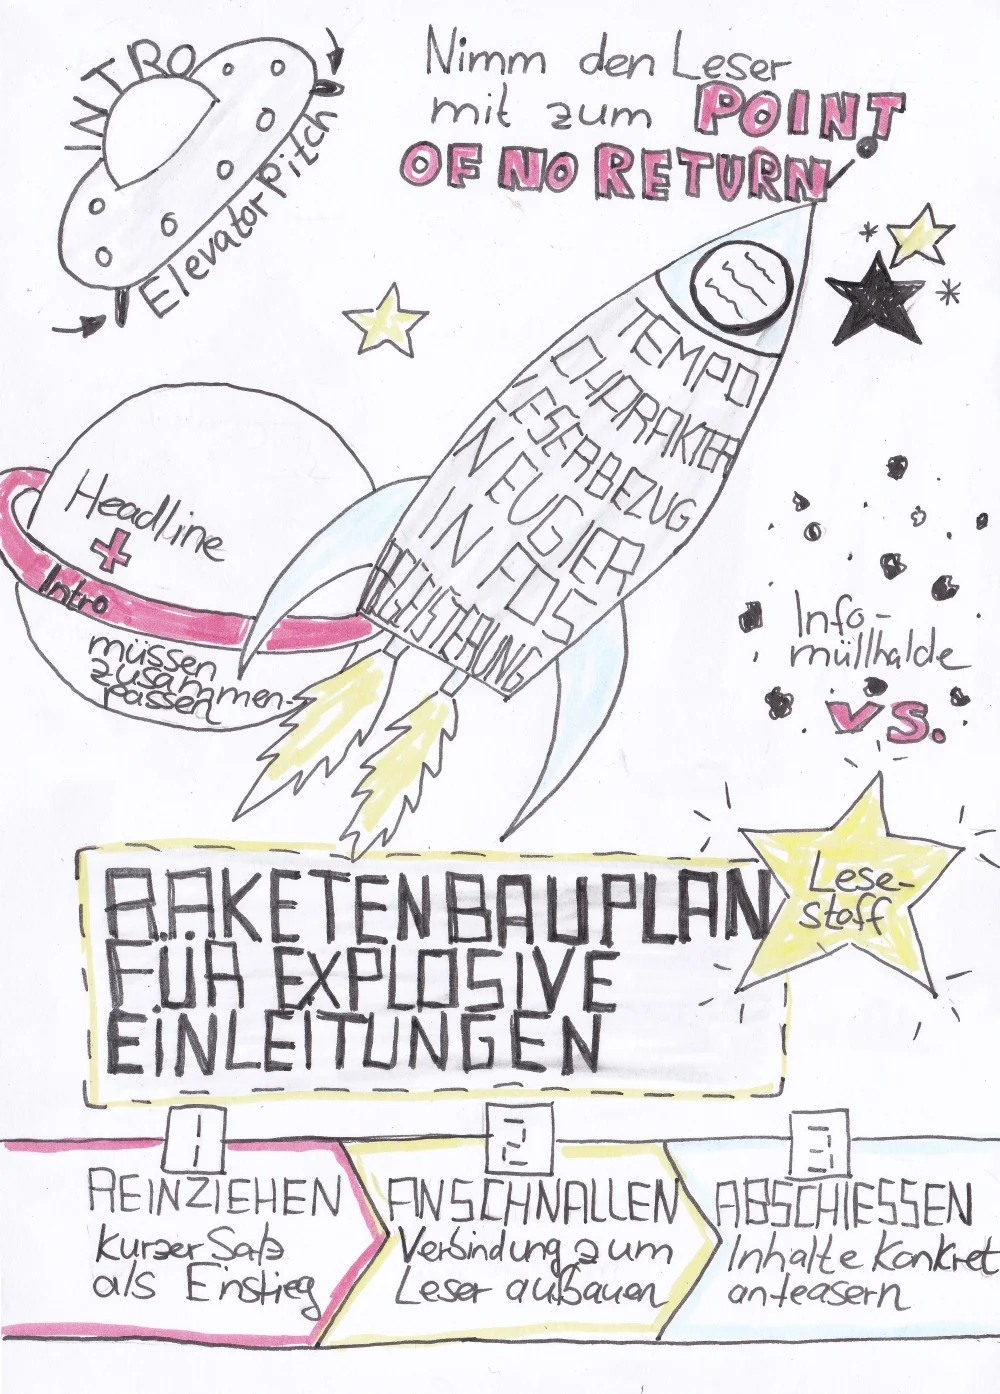 INTRO
Elevator Pitch
Nimm den Leser
mit zum POINT
OF NO RETURN
TEMPO
CHARAKTER
LESERBEZUG
NEUGIER
INFOS
BEGEISTERUNG
Headline
+
Intro
müssen
zusammen-
passen
Info-
müllhalde
vs.
Lese-
stoff
RAKETENBAUPLAN
FÜR EXPLOSIVE
EINLEITUNGEN
1
REINZIEHEN
kurzer Satz
als Einstieg
2
ANSCHNALLEN
Verbindung zum
Leser aufbauen
3
ABSCHIESSEN
Inhalte konkret
anteasern